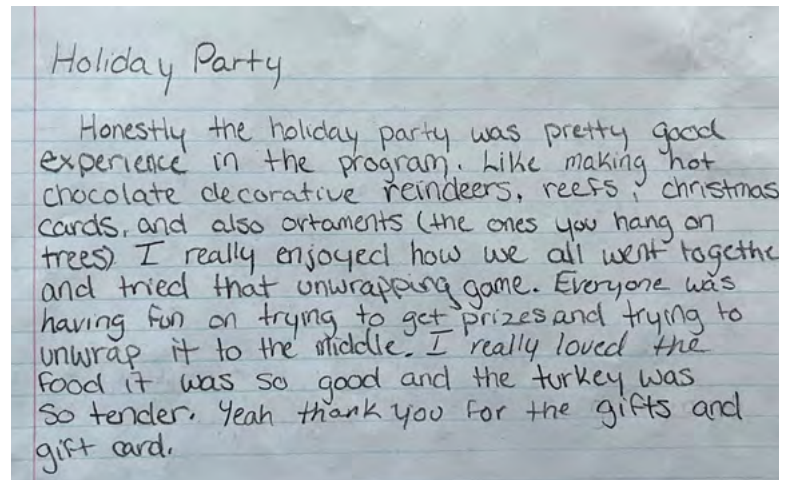 Holiday Party
Honestly the holiday party was pretty good
experience in the program. Like making hot
chocolate decorative reindeers, reefs, christmas
cards, and also ortaments (the ones you hang on
trees) I really enjoyed how we all went togethe
and tried that unwrapping game. Everyone was
having fun on trying to get prizes and trying to
unwrap it to the middle. I really loved the
food it was so good and the turkey was
so tender. Yeah thank you for the gifts and
gift card.